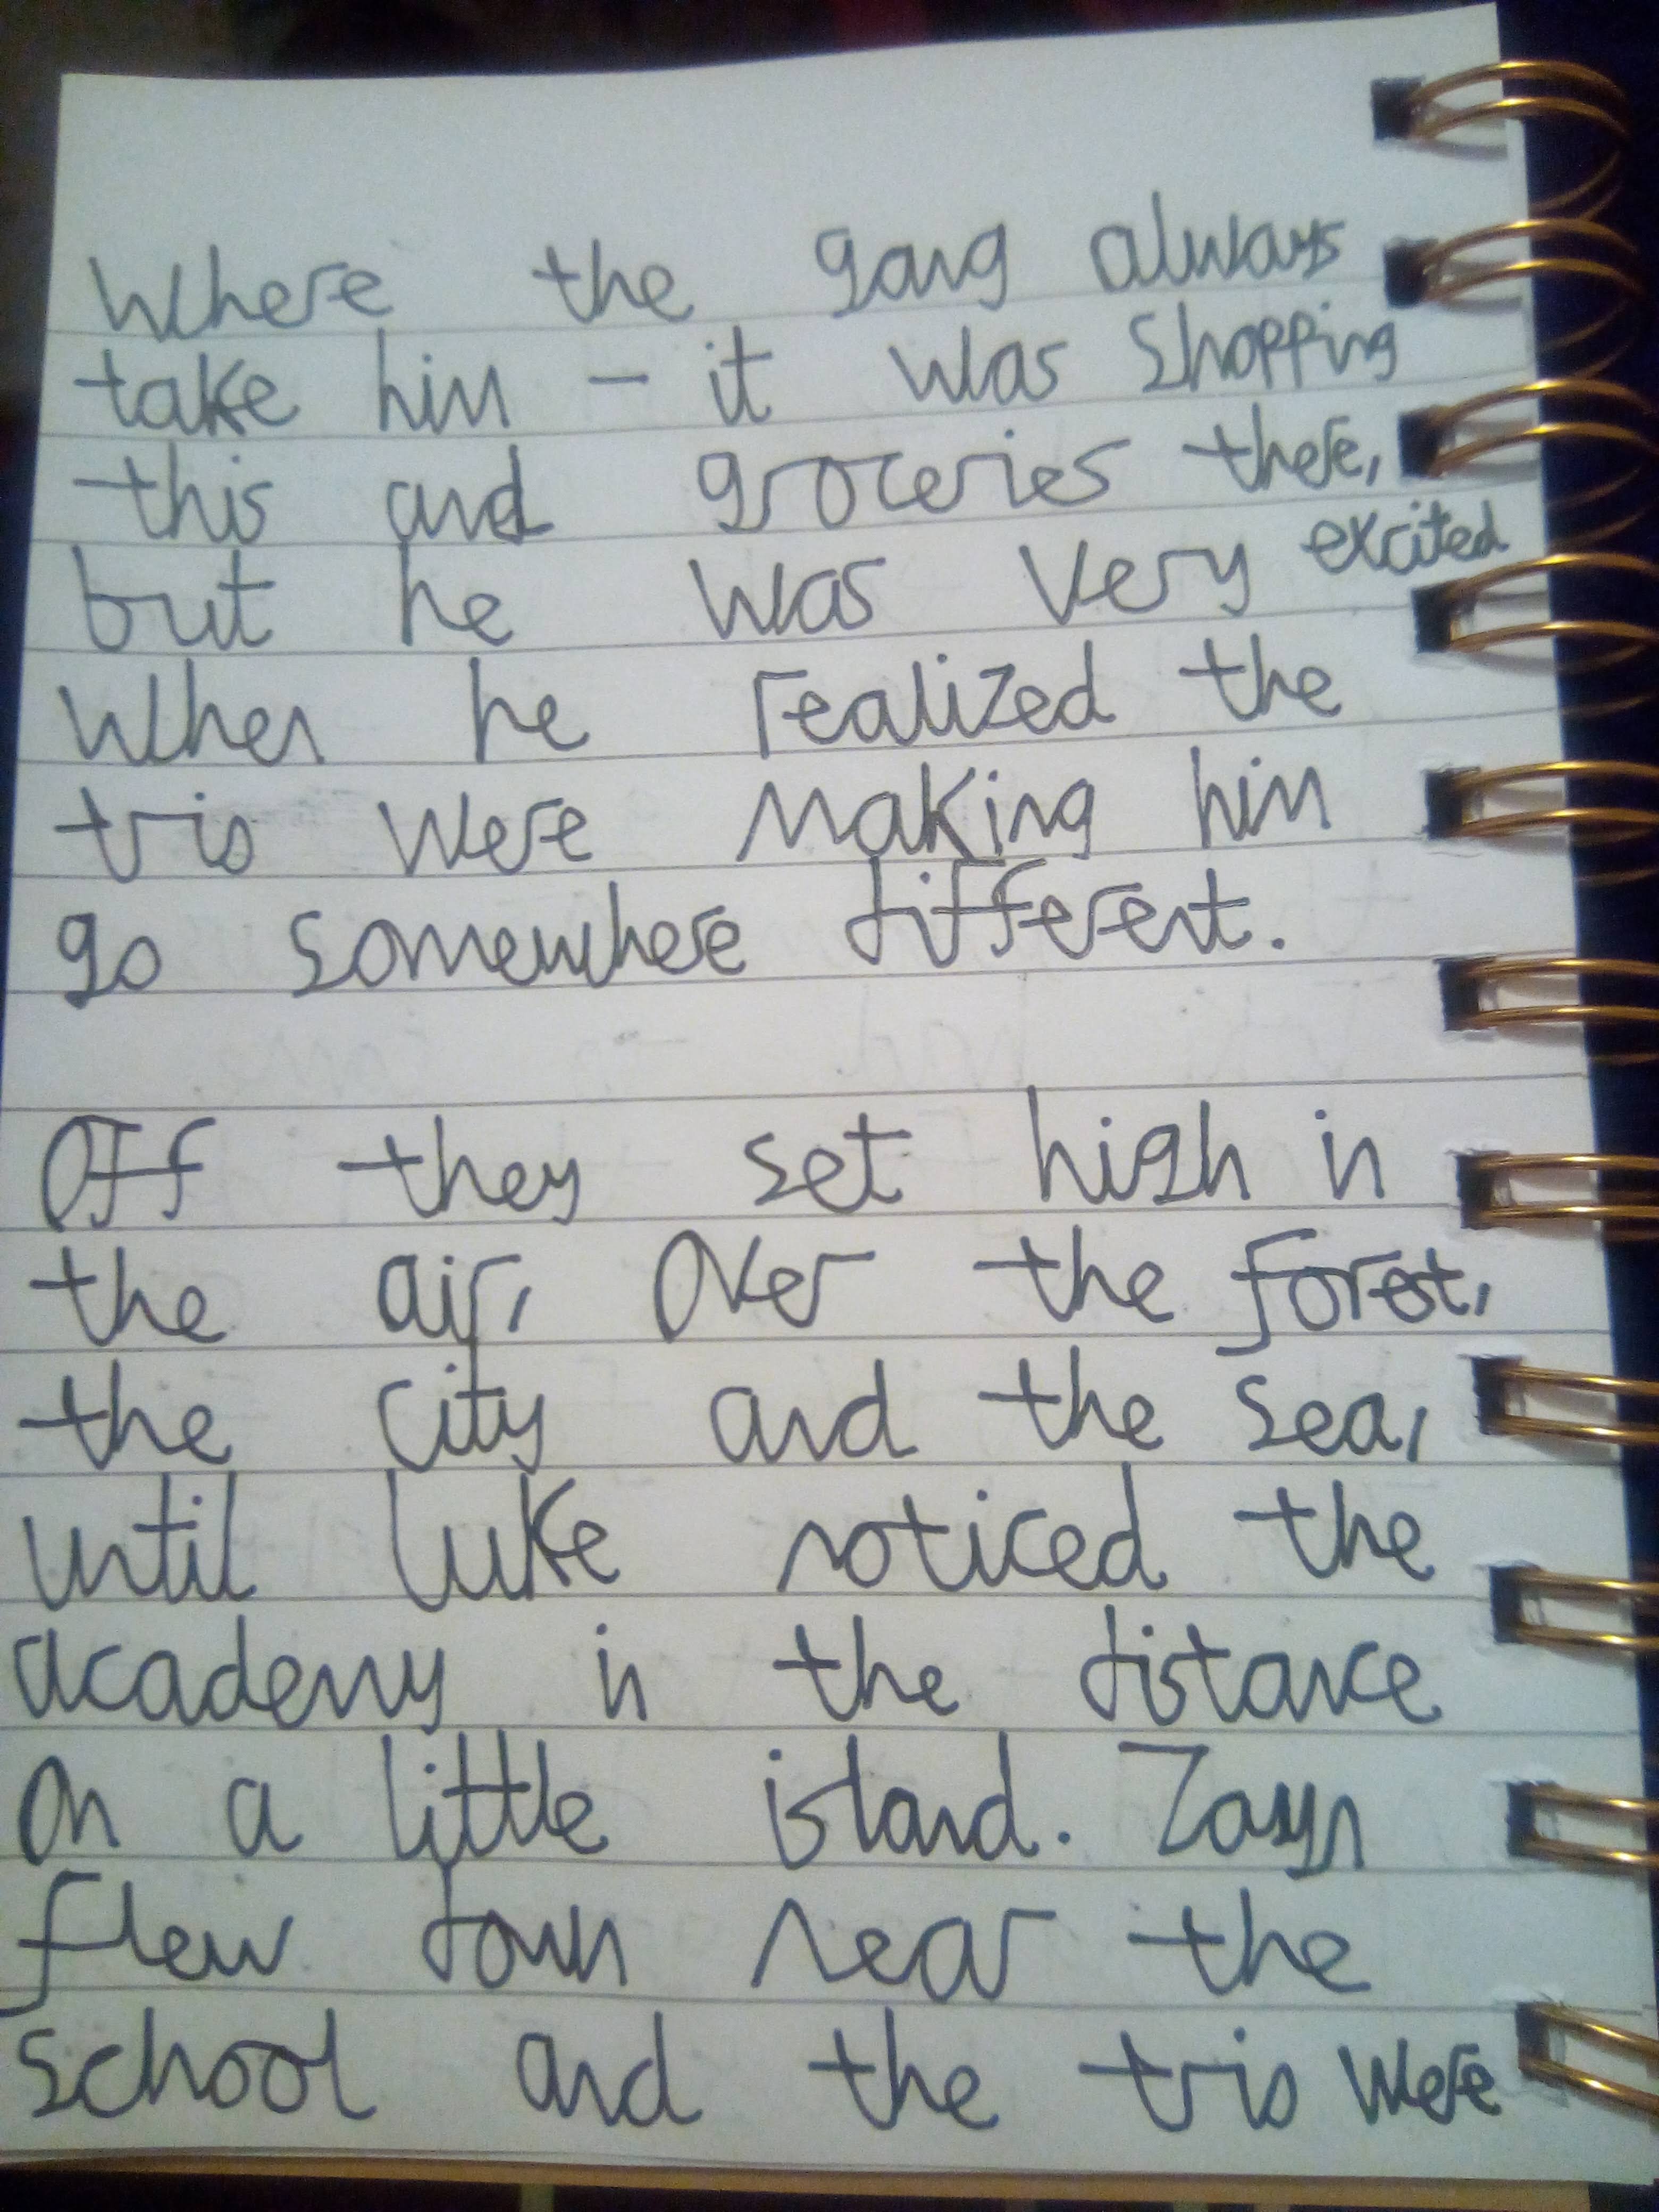 Where the gang always
take him - it was shopping
this and groceries there,
but he was very excited
when he realized the
trio were making him
go somewhere different.
Off they set high in
the air, over the forest,
the city and the sea,
until Luke noticed the
academy in the distance
on a little island. Zayn
flew down near the
school and the trio were